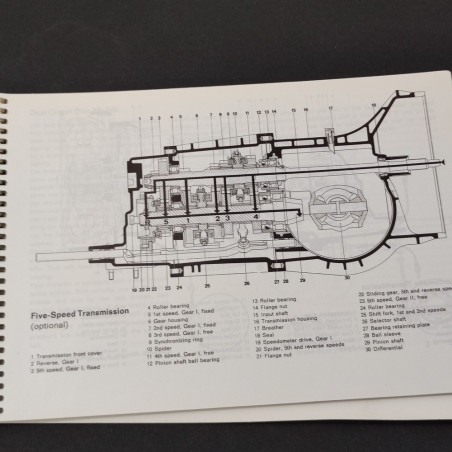 1 2 3 4 5 6 7 8 9 10 11 12 13 14 15 16 17 18
5 1 2 3 4
19 20 21 22 23 24 25 26 27 28 29 30
Five-Speed Transmission
(optional)
1 Transmission front cover
2 Reverse, Gear I
3 5th speed, Gear I, fixed
4 Roller bearing
5 1st speed, Gear I, fixed
6 Gear housing
7 2nd speed, Gear I, fixed
8 3rd speed, Gear I, free
9 Synchronizing ring
10 Spider
11 4th speed, Gear I, free
12 Pinion shaft ball bearing
13 Roller bearing
14 Flange nut
15 Input shaft
16 Transmission housing
17 Breather
18 Seal
19 Speedometer drive, Gear I
20 Spider, 5th and reverse speeds
21 Flange nut
22 Sliding gear, 5th and reverse speeds
23 5th speed, Gear II, free
24 Roller bearing
25 Shift fork, 1st and 2nd speeds
26 Selector shaft
27 Bearing retaining plate
28 Ball sleeve
29 Pinion shaft
30 Differential